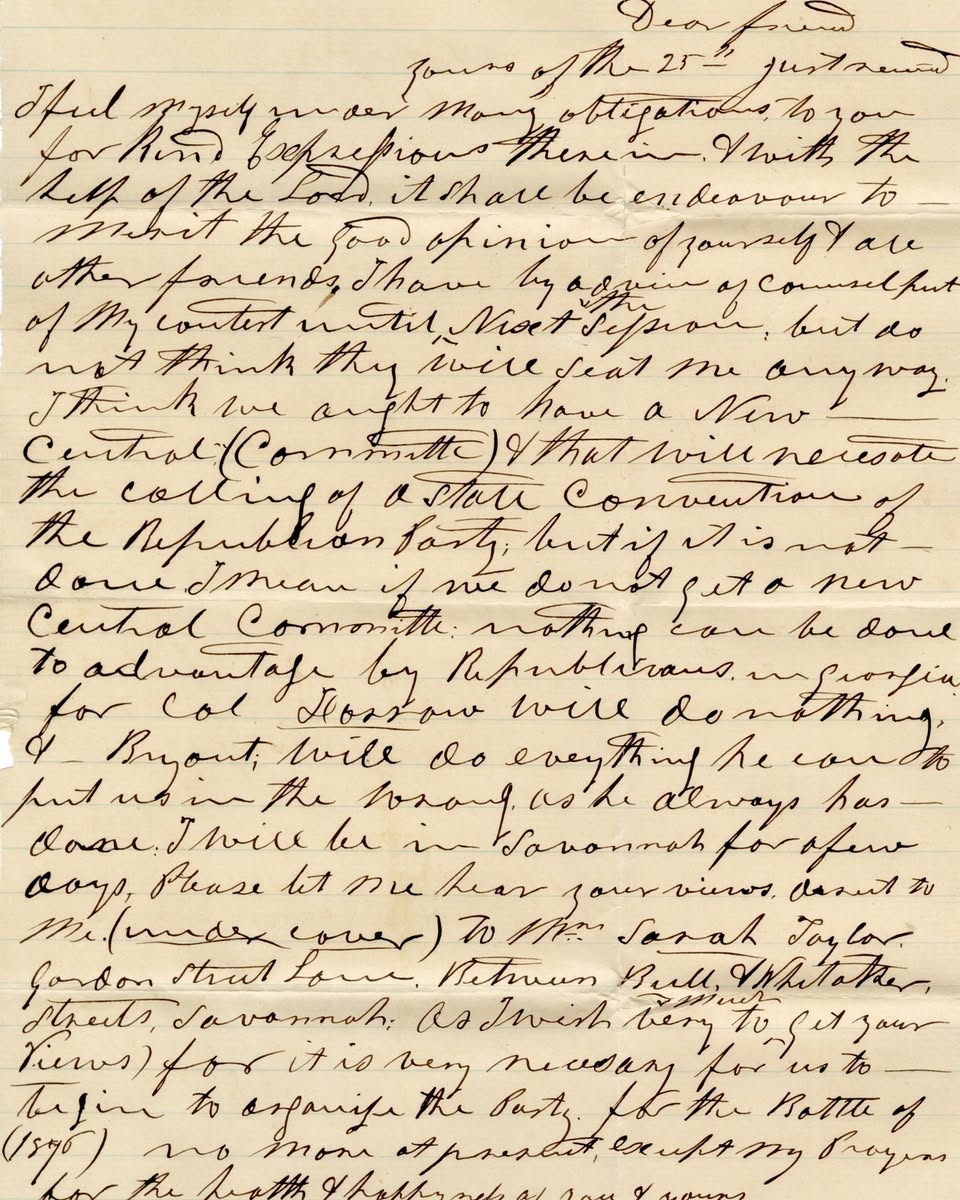 Dear friend
yours of the 25th just received
I feel myself under many obligations, to you
for Kind Expressions therein. & with the
help of the Lord, it shall be endeavour to —
Merit the good opinion of yourself & all
other friends, I have by advice of Counsel put
of My contest until, Next the Session, but do
not think they will seat me any way.
I think we aught to have a New —
Central (Committe) & that will necesate
the calling of a State Convention of
the Republican Party; but if it is not —
done I mean if we do not get a new
Central Committe; nothing can be done
to advantage by Republicans. in Georgia
for Col Farrow will do nothing,
& – Bryant; will do everything he can to
put us in the wrong, as he always has —
done. I will be in Savannah for a few
days, Please let me hear your views, direct to
Me. (under cover) to Mrs Sarah Taylor.
Gordon Street Lane. Between Bull, & Whitaker,
Streets, Savannah; As I wish very much to get your
Views) for it is very necessary for us to —
begin to organise the Party. for the Battle of
(1876) no more at present, except my Prayers
for the health & happyness of you & yours